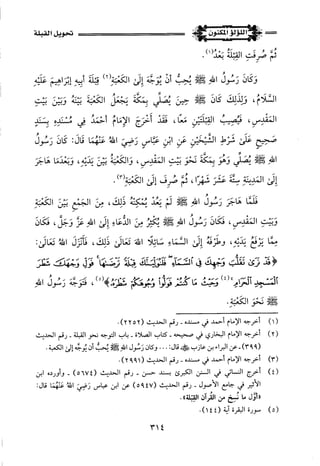 اللؤلؤ المكنون
تحويل القبلة
ثُمَّ صُرِفَتِ القِبْلَةُ بَعْدُ(١).
وَكَانَ رَسُولُ اللهِ ﷺ يُحِبُّ أنْ يُوَجَّهَ إلَى الكَعْبَةِ(٢) قِبْلَةِ أبِيهِ إبْرَاهِيمَ عَلَيْهِ
السَّلَامُ، وَلِذَلِكَ كَانَ ﷺ حِينَ يُصَلِّي بِمَكَّةَ يَجْعَلُ الكَعْبَةَ بَيْنَهُ وَبَيْنَ بَيْتِ
المَقْدِسِ، فَيُصِيبُ القِبْلَتَيْنِ مَعًا، فَقَدْ أخْرَجَ الإمَامُ أحْمَدُ فِي مُسْنَدِهِ بِسَنَدٍ
صَحِيحٍ عَلَى شَرْطِ الشَّيْخَيْنِ عَنِ ابْنِ عَبَّاسٍ رَضِيَ اللهُ عَنْهُمَا قَالَ: كَانَ رَسُولُ
اللهِ ﷺ يُصَلِّي وَهُوَ بِمَكَّةَ نَحْوَ بَيْتِ المَقْدِسِ، وَالكَعْبَةُ بَيْنَ يَدَيْهِ، وَبَعْدَمَا هَاجَرَ
إلَى المَدِينَةِ سِتَّةَ عَشَرَ شَهْرًا، ثُمَّ صُرِفَ إلَى الكَعْبَةِ(٣).
فَلَمَّا هَاجَرَ رَسُولُ اللهِ ﷺ لَمْ يَعُدْ يُمْكِنُهُ ذَلِكَ، مِنَ الجَمْعِ بَيْنَ الكَعْبَةِ
وَبَيْتِ المَقْدِسِ، فَكَانَ رَسُولُ اللهِ ﷺ يُكْثِرُ مِنَ الدُّعَاءِ إلَى اللهِ عَزَّ وَجَلَّ، فَكَانَ
مِمَّا يَرْفَعُ يَدَيْهِ، وَطَرْفَهُ إلَى السَّمَاءِ سَائِلًا اللهَ تَعَالَى ذَلِكَ، فَأَنْزَلَ اللهُ تَعَالَى:
﴿قَدْ نَرَىٰ تَقَلُّبَ وَجْهِكَ فِي السَّمَاءِ فَلَنُوَلِّيَنَّكَ قِبْلَةً تَرْضَاهَا فَوَلِّ وَجْهَكَ شَطْرَ
الْمَسْجِدِ الْحَرَامِ(٤) وَحَيْثُ مَا كُنتُمْ فَوَلُّوا وُجُوهَكُمْ شَطْرَهُ﴾(٥)، فَتَوَجَّهَ رَسُولُ اللهِ
ﷺ نَحْوَ الكَعْبَةِ.
(١) أخرجه الإمام أحمد في مسنده ـ رقم الحديث (٢٢٥٢).
(٢) أخرجه الإمام البخاري في صحيحه ـ كتاب الصلاة ـ باب التوجه نحو القبلة ـ رقم الحديث
(٣٩٩) ـ عن البراء بن عازب ﷺ قال: ... وكان رَسُولُ اللهِ ﷺ يُحِبُّ أنْ يُوَجَّهَ إلى الكعبة.
(٣) أخرجه الإمام أحمد في مسنده ـ رقم الحديث (٢٩٩١).
(٤) أخرج النسائي في السنن الكبرى بسند حسن ـ رقم الحديث (٥٦٧٤) ـ وأورده ابن
الأثير في جامع الأصول ـ رقم الحديث (٥٩٤٧) عن ابن عباس رَضِيَ اللهُ عَنْهُمَا قال:
«أوَّل ما نُسخ من القرآن القبلة».
(٥) سورة البقرة آية (١٤٤).
٣١٤